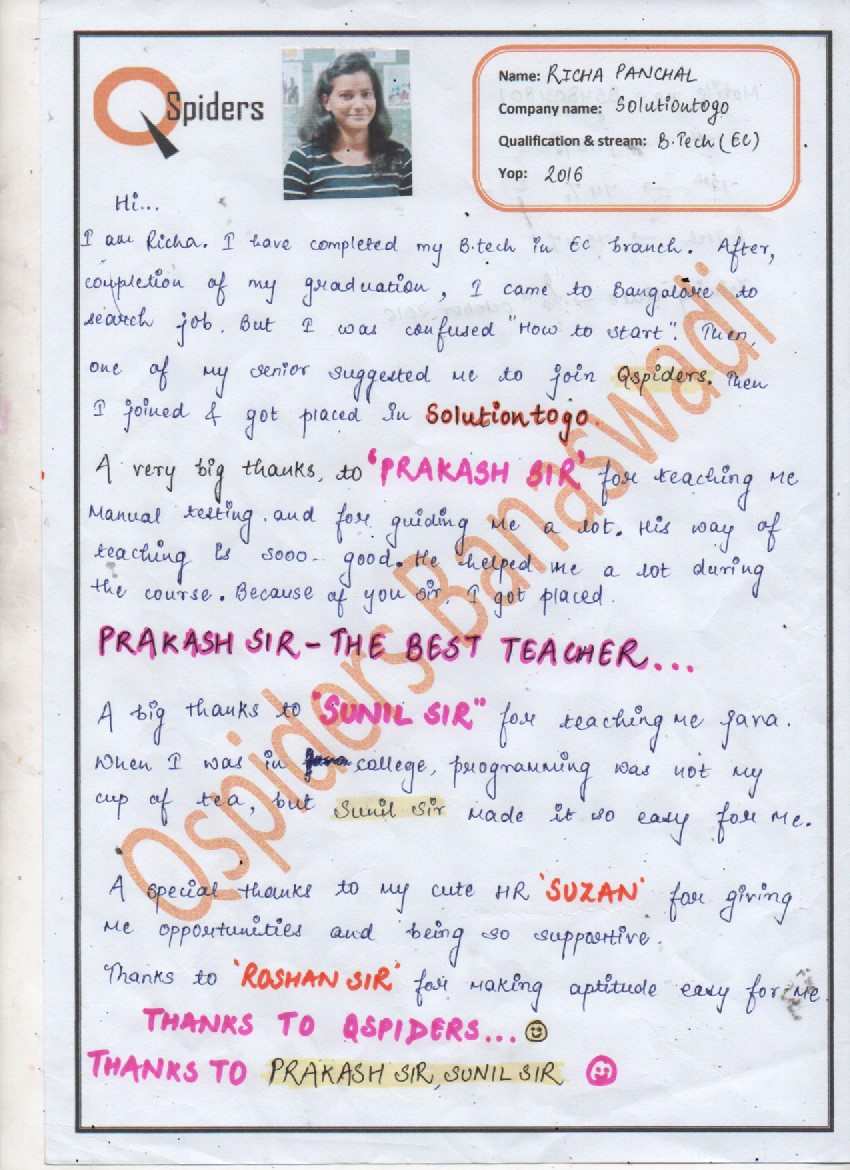 QSpiders
Name: RICHA PANCHAL
Company name: Solutiontogo
Qualification & stream: B.Tech (EC)
Yop: 2016
Hi...
I am Richa. I have completed my B.tech in EC branch. After,
completion of my graduation, I came to Bangalore to
search job. But I was confused "How to start". Then,
one of my senior suggested me to join Qspiders. Then
I joined & got placed in Solutiontogo.
A very big thanks, to 'PRAKASH SIR' for teaching me
manual testing. and for guiding me a lot. His way of
teaching is sooo.. good. He helped me a lot during
the course. Because of you sir, I got placed.
PRAKASH SIR - THE BEST TEACHER...
A big thanks to "SUNIL SIR" for teaching me Java.
When I was in college, programming was not my
cup of tea, but Sunil Sir made it so easy for me.
A special thanks to my cute HR 'SUZAN' for giving
me opportunities and being so supportive.
Thanks to 'ROSHAN SIR' for making aptitude easy for me.
THANKS TO QSPIDERS...
THANKS TO PRAKASH SIR, SUNIL SIR
Qspiders Banaswadi